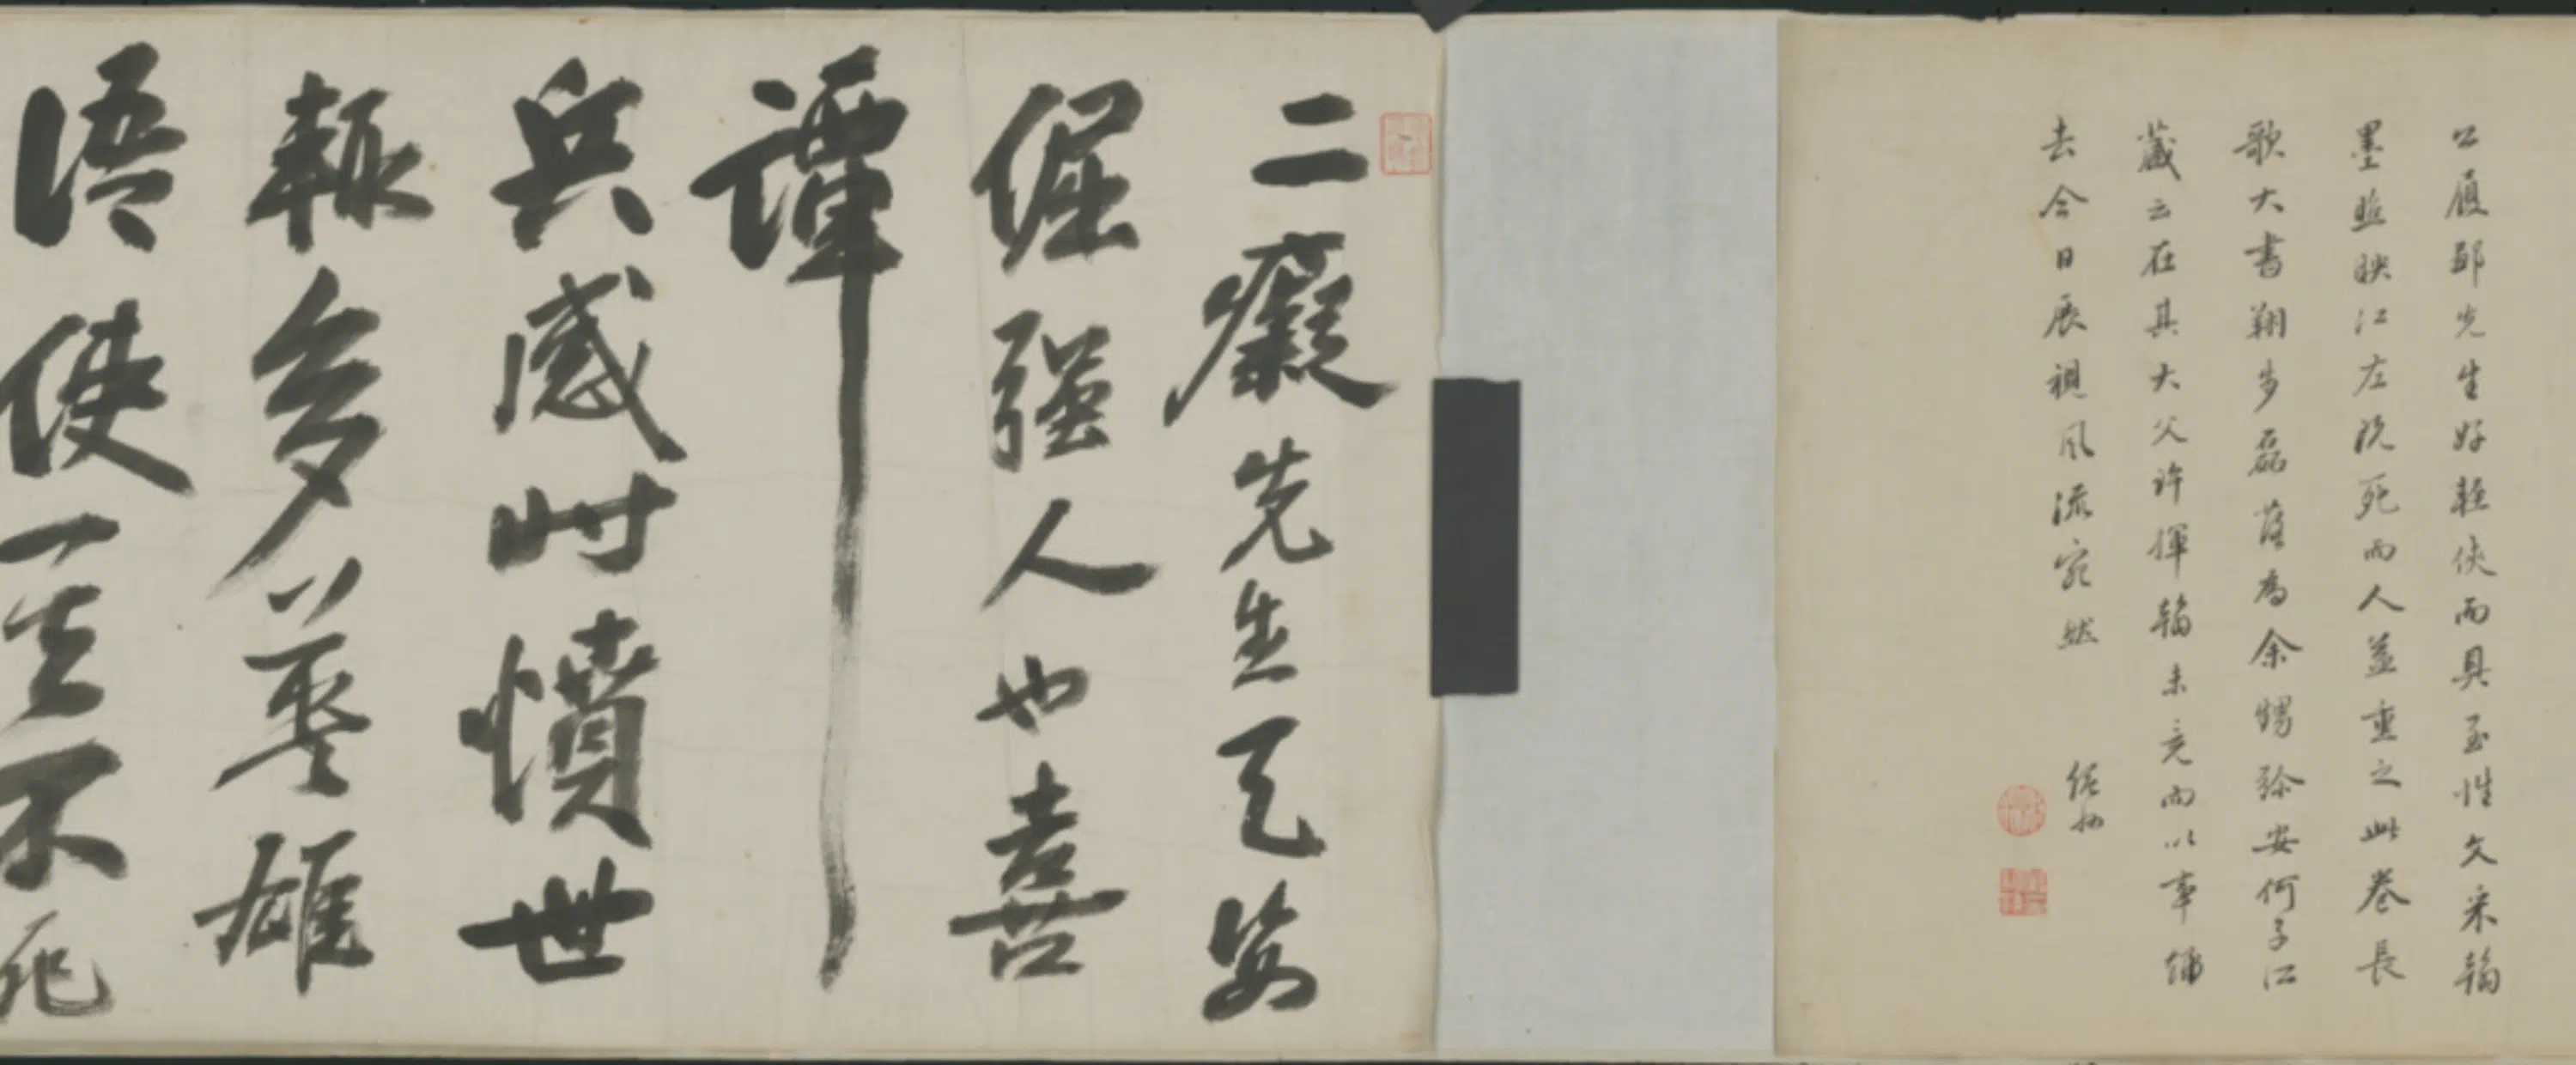 公履鄒先生好輕俠而具至性文采翰
墨照映江左既死而人益重之此卷長
歌大書翔步磊落為余甥孫安何子江
藏云在其大父許揮翰未竟而以事
去今日展視風流宛然
二癡先生天
倔强人也喜
譚
兵感時憤世
輒多英雄
語使其不死